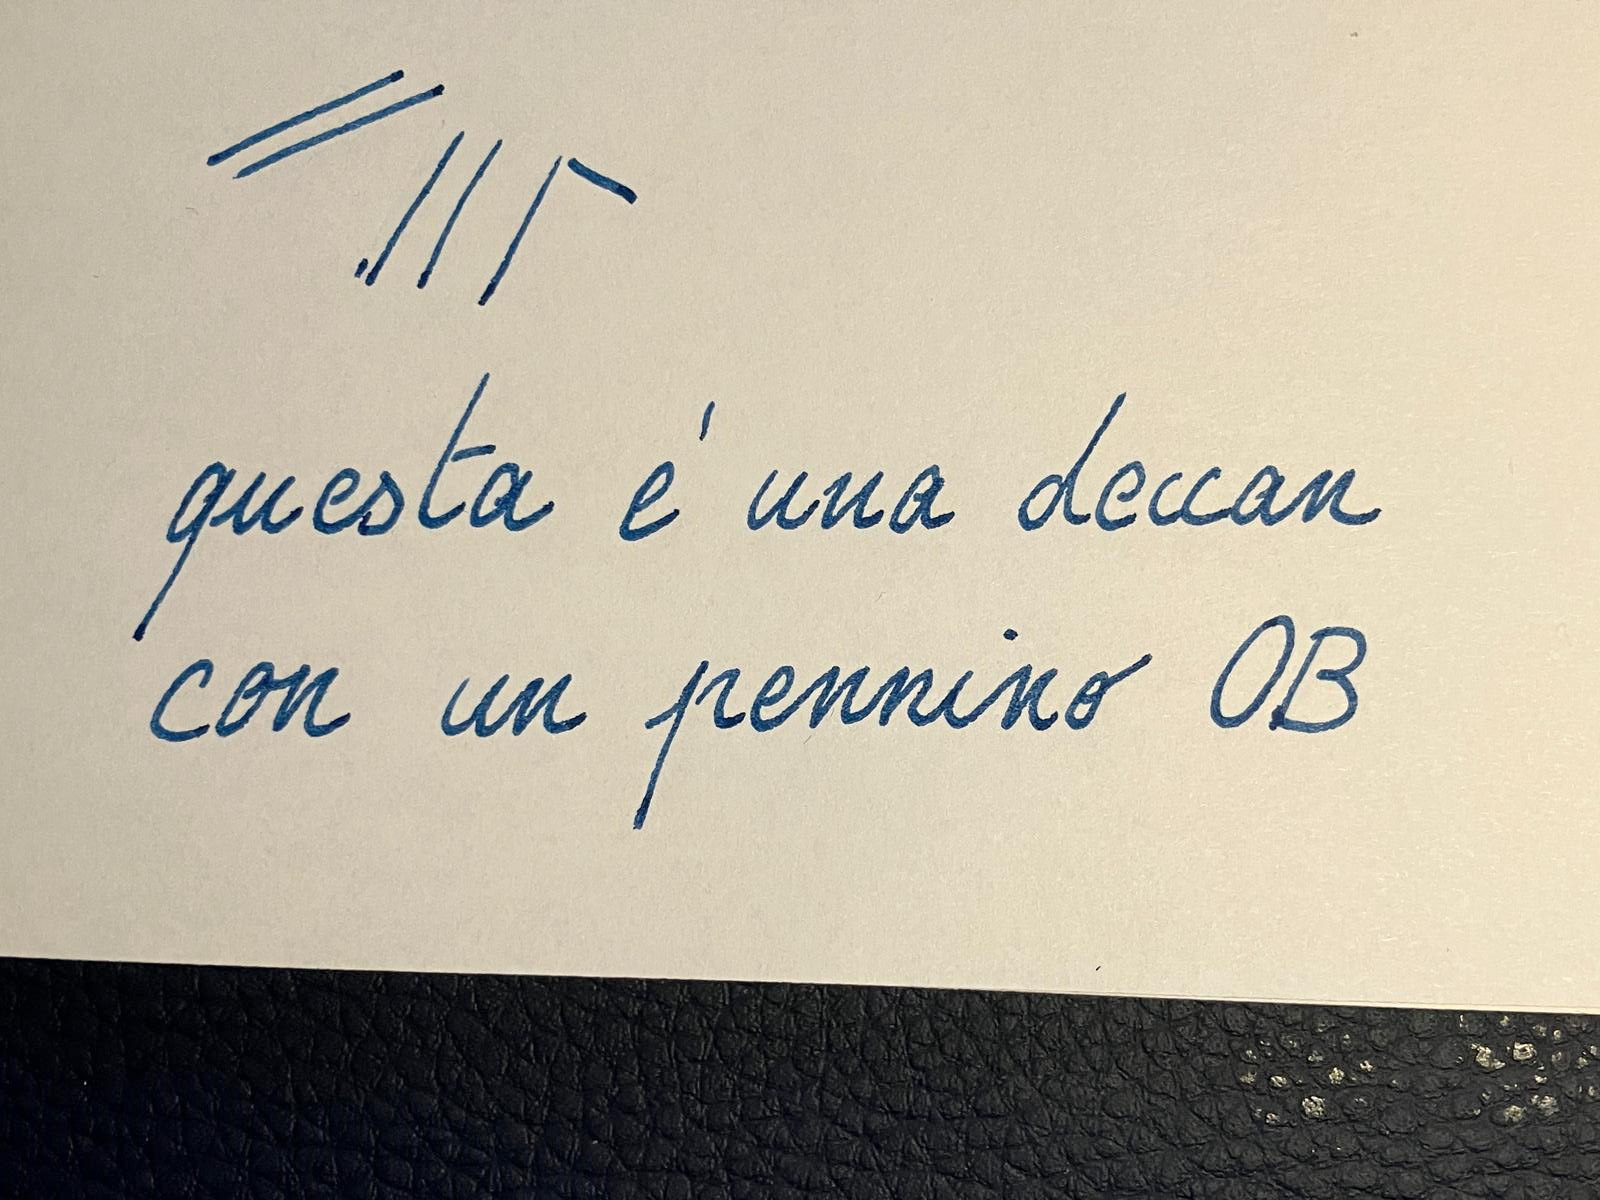 questa é una deccan
con un pennino OB